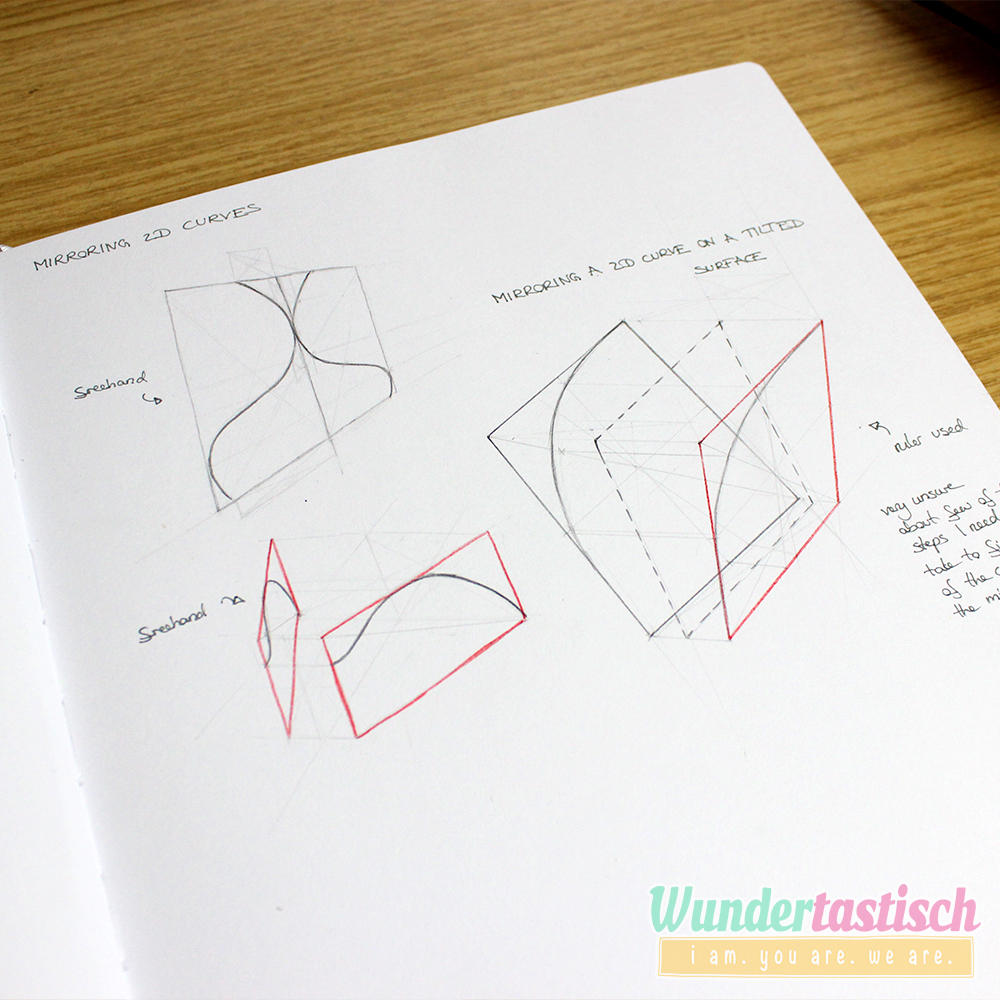 MIRRORING 2D CURVES
MIRRORING A 2D CURVE ON A TILTED
SURFACE
freehand
ruler used
very unsure
about few of
steps I need
take to
of the
the
freehand
Wundertastisch
i am. you are. we are.